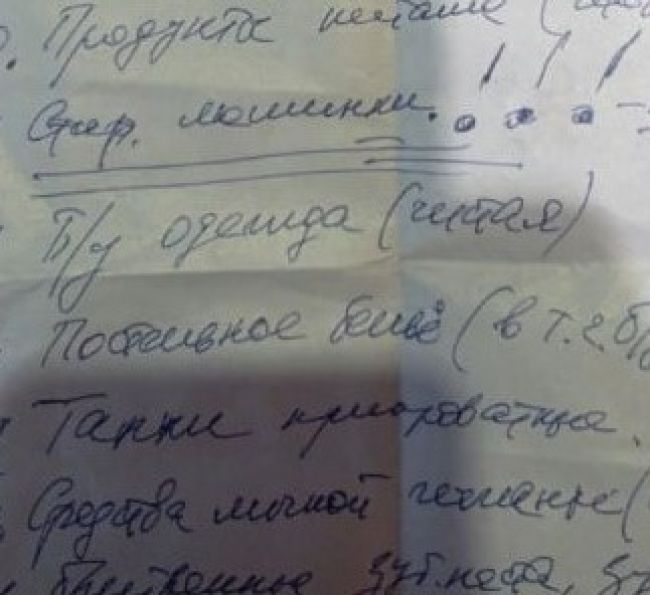 Продукты питание (
Стир. машинки. !!!
Б/у одежда (чистая)
Постельное бельё (в т.ч. б/у
Тапки прикроватные.
Средства личной гигиены (
зуб. паста,